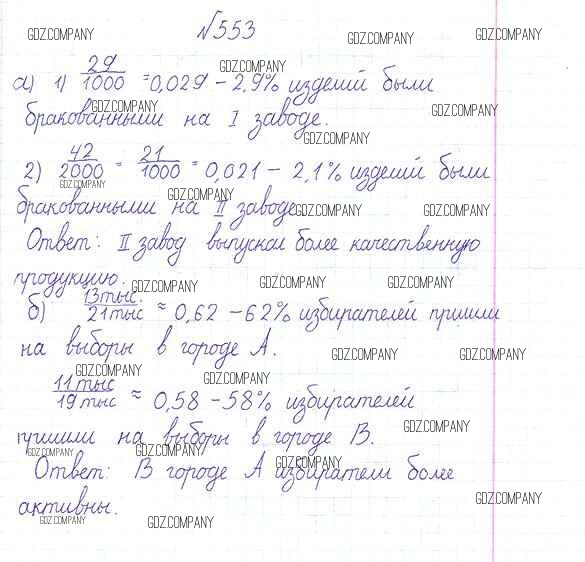 №553
GDZ.COMPANY GDZ.COMPANY GDZ.COMPANY
а) 1) 29/1000 = 0,029 – 2,9% изделий были
GDZ.COMPANY
GDZ.COMPANY GDZ.COMPANY
бракованными на I заводе.
GDZ.COMPANY
2) 42/2000 = 21/1000 = 0,021 – 2,1% изделий были
GDZ.COMPANY GDZ.COMPANY
бракованными на II заводе
GDZ.COMPANY GDZ.COMPANY
Ответ: II завод выпускал более качественную
продукцию.
GDZ.COMPANY GDZ.COMPANY GDZ.COMPANY
б) 13тыс./21тыс ≈ 0,62 – 62% избирателей пришли
на выборы в городе А.
GDZ.COMPANY GDZ.COMPANY
GDZ.COMPANY GDZ.COMPANY
11тыс/19тыс ≈ 0,58 – 58% избирателей
пришли на выборы в городе В.
GDZ.COMPANY
GDZ.COMPANY GDZ.COMPANY GDZ.COMPANY
Ответ: В городе А избиратели более
активны.
GDZ.COMPANY
GDZ.COMPANY GDZ.COMPANY